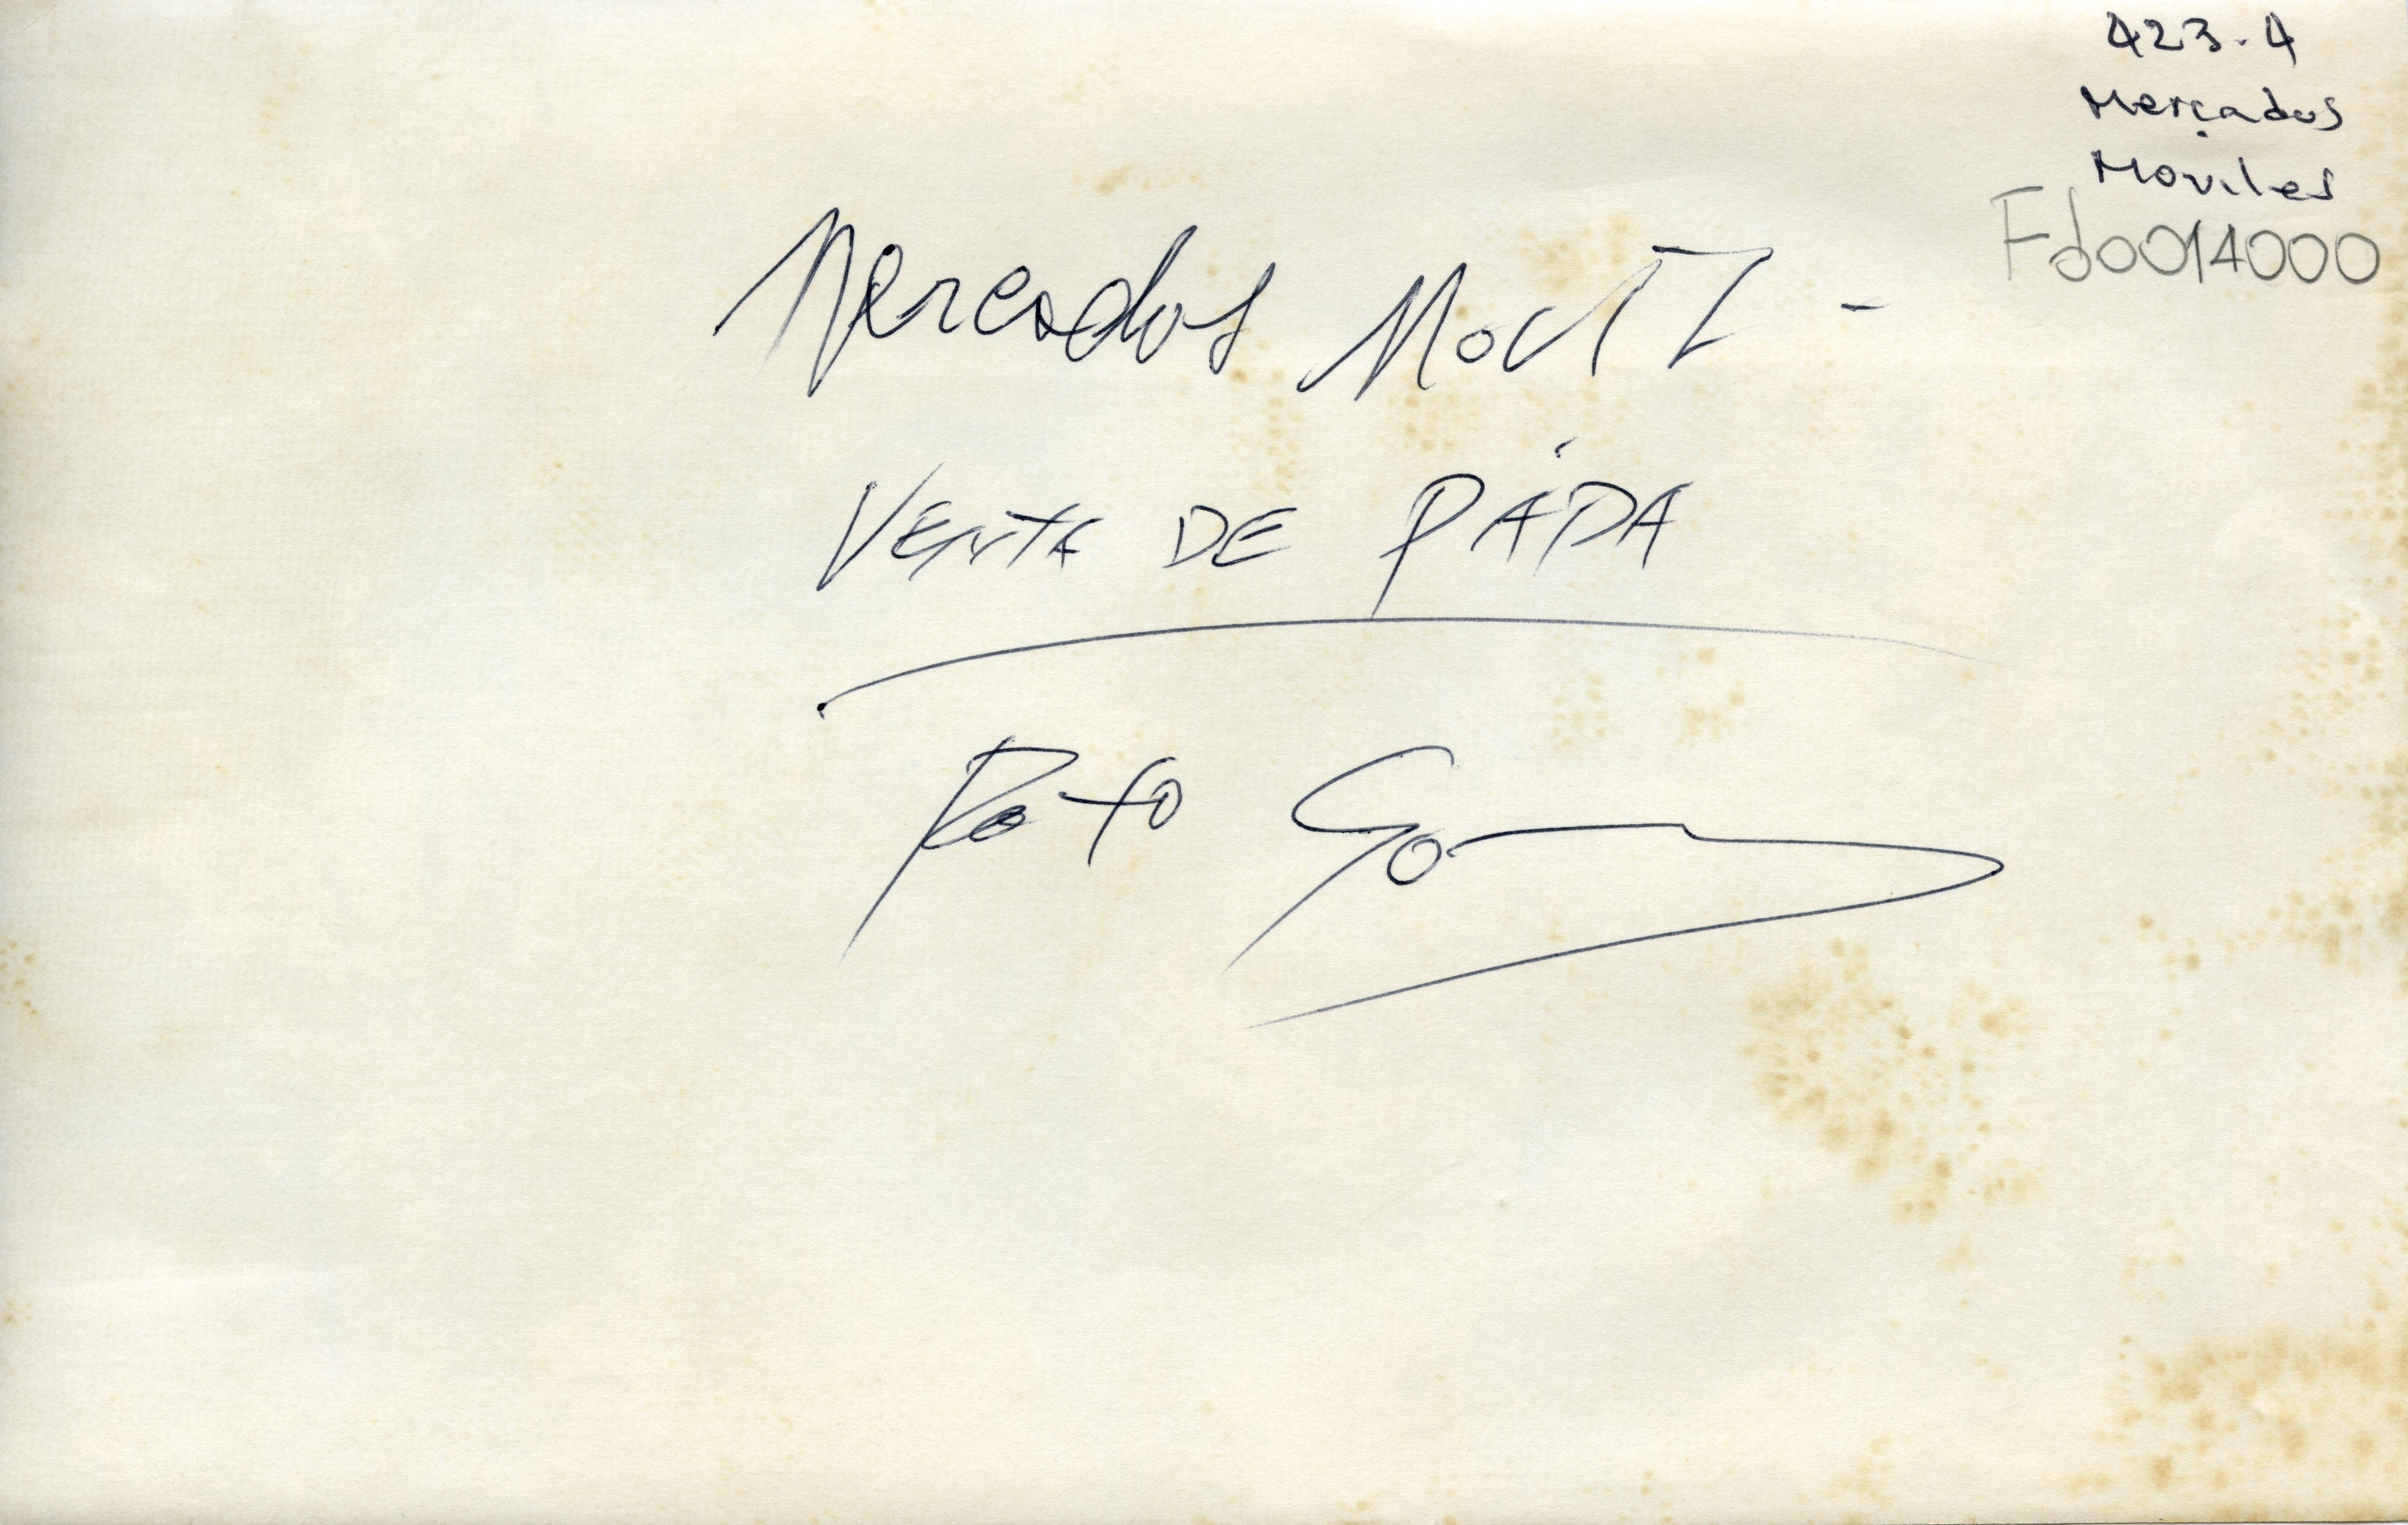 423-4
Mercados
Moviles
Fd0014000
Mercados Movil -
VENTA DE PAPA